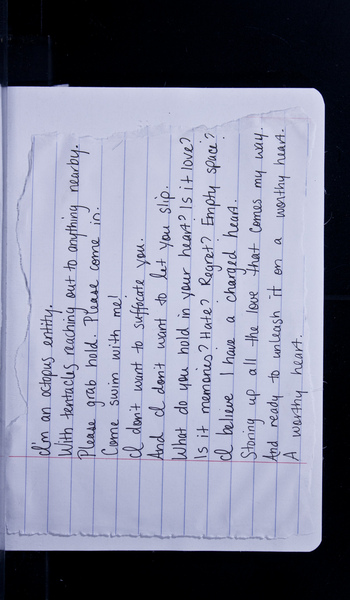 I'm an octopus entity.
With tentacles reaching out to anything nearby.
Please grab hold. Please come in.
Come swim with me!
I don't want to suffocate you.
And I don't want to let you slip.
What do you hold in your heart? Is it love?
Is it memories? Hate? Regret? Empty space?
I believe I have a charged heart.
Storing up all the love that comes my way.
And ready to unleash it on a worthy heart.
A worthy heart.